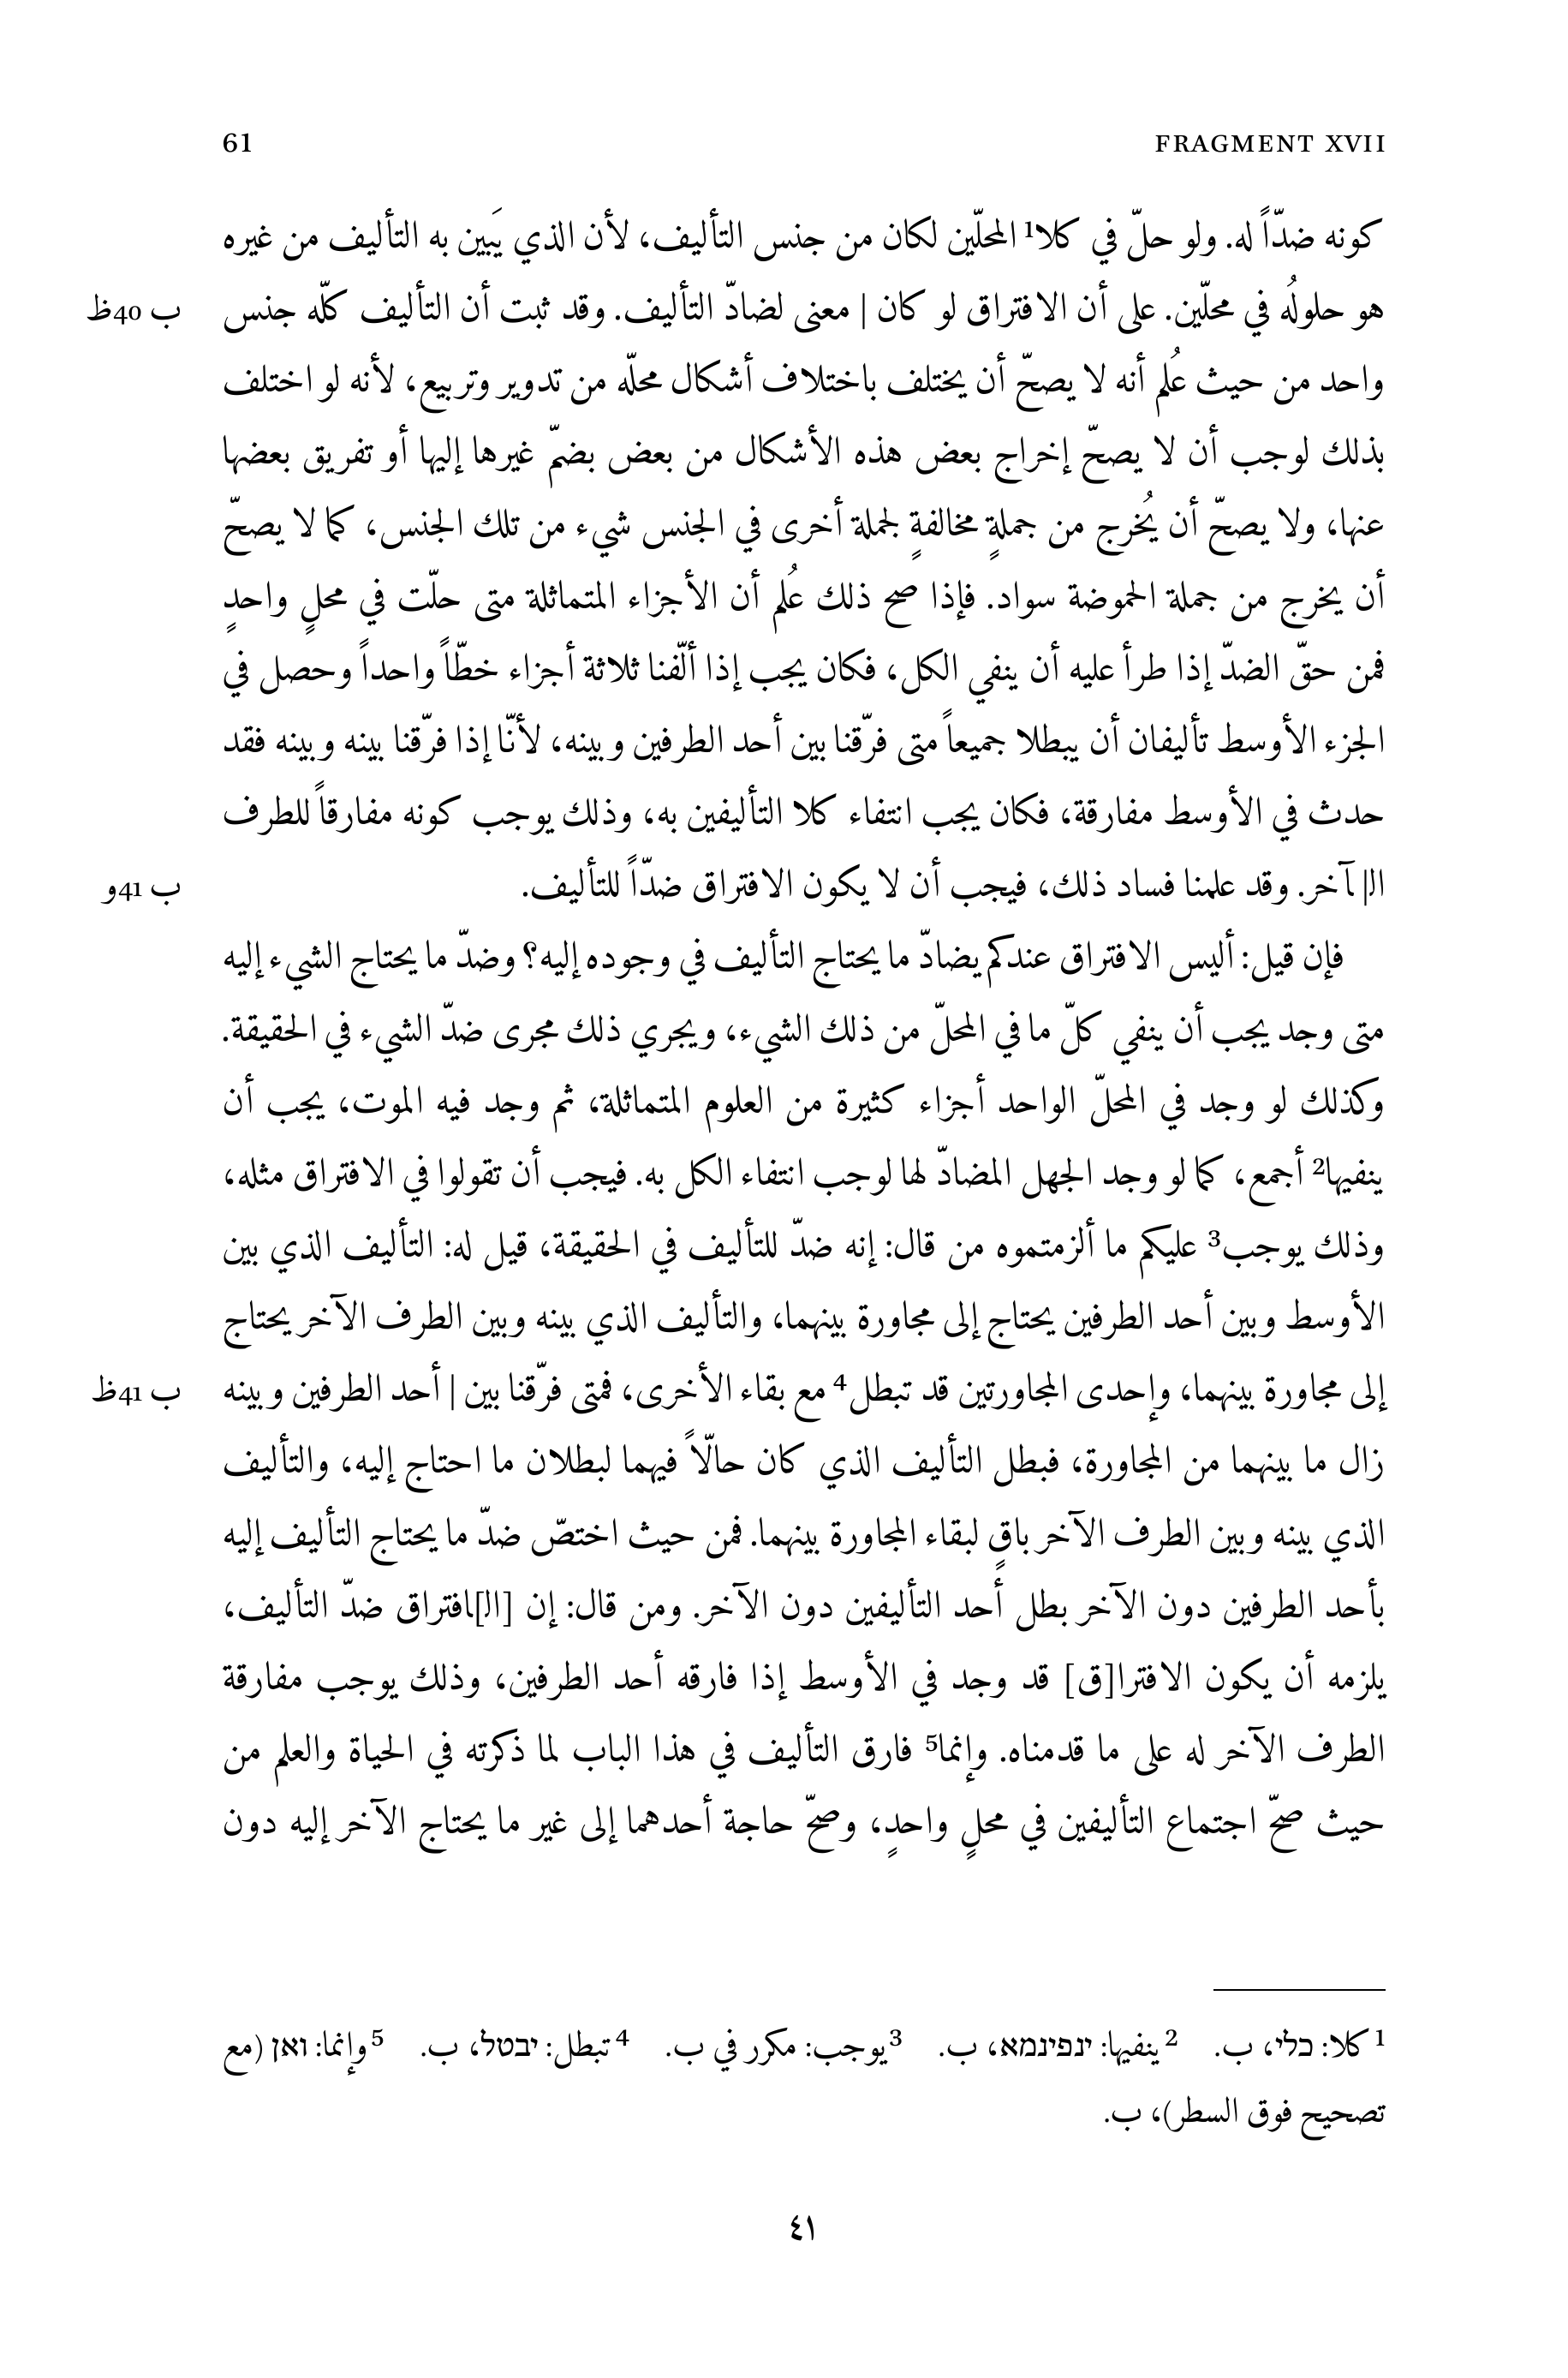 61 FRAGMENT XVII
كونه ضدّاً له. ولو حلّ في كلا1 المحلّين لكان من جنس التأليف، لأن الذي يَبين به التأليف من غيره
هو حلولُه في محلّين. على أن الافتراق لو كان | معنى لضادّ التأليف. وقد ثبت أن التأليف كلّه جنس ب 40ظ
واحد من حيث عُلم أنه لا يصحّ أن يختلف باختلاف أشكال محلّه من تدوير وتربيع، لأنه لو اختلف
بذلك لوجب أن لا يصحّ إخراج بعض هذه الأشكال من بعض بضمّ غيرها إليها أو تفريق بعضها
عنها، ولا يصحّ أن يُخرج من جملةٍ مخالفةٍ لجملة أخرى في الجنس شيء من تلك الجنس، كما لا يصحّ
أن يخرج من جملة الحموضة سواد. فإذا صح ذلك عُلم أن الأجزاء المتماثلة متى حلّت في محلٍ واحدٍ
فمن حقّ الضدّ إذا طرأ عليه أن ينفي الكل، فكان يجب إذا ألّفنا ثلاثة أجزاء خطّاً واحداً وحصل في
الجزء الأوسط تأليفان أن يبطلا جميعاً متى فرّقنا بين أحد الطرفين وبينه، لأنّا إذا فرّقنا بينه وبينه فقد
حدث في الأوسط مفارقة، فكان يجب انتفاء كلا التأليفين به، وذلك يوجب كونه مفارقاً للطرف
ال|آخر. وقد علمنا فساد ذلك، فيجب أن لا يكون الافتراق ضدّاً للتأليف. ب 41و
فإن قيل: أليس الافتراق عندكم يضادّ ما يحتاج التأليف في وجوده إليه؟ وضدّ ما يحتاج الشيء إليه
متى وجد يجب أن ينفي كلّ ما في المحلّ من ذلك الشيء، ويجري ذلك مجرى ضدّ الشيء في الحقيقة.
وكذلك لو وجد في المحلّ الواحد أجزاء كثيرة من العلوم المتماثلة، ثم وجد فيه الموت، يجب أن
ينفيها2 أجمع، كما لو وجد الجهل المضادّ لها لوجب انتفاء الكل به. فيجب أن تقولوا في الافتراق مثله،
وذلك يوجب3 عليكم ما ألزمتموه من قال: إنه ضدّ للتأليف في الحقيقة، قيل له: التأليف الذي بين
الأوسط وبين أحد الطرفين يحتاج إلى مجاورة بينهما، والتأليف الذي بينه وبين الطرف الآخر يحتاج
إلى مجاورة بينهما، وإحدى المجاورتين قد تبطل4 مع بقاء الأخرى، فمتى فرّقنا بين | أحد الطرفين وبينه ب 41ظ
زال ما بينهما من المجاورة، فبطل التأليف الذي كان حالّاً فيهما لبطلان ما احتاج إليه، والتأليف
الذي بينه وبين الطرف الآخر باقٍ لبقاء المجاورة بينهما. فمن حيث اختصّ ضدّ ما يحتاج التأليف إليه
بأحد الطرفين دون الآخر بطل أحد التأليفين دون الآخر. ومن قال: إن [ال]افتراق ضدّ التأليف،
يلزمه أن يكون الافترا[ق] قد وجد في الأوسط إذا فارقه أحد الطرفين، وذلك يوجب مفارقة
الطرف الآخر له على ما قدمناه. وإنما5 فارق التأليف في هذا الباب لما ذكرته في الحياة والعلم من
حيث صحّ اجتماع التأليفين في محلٍ واحدٍ، وصحّ حاجة أحدهما إلى غير ما يحتاج الآخر إليه دون
1 كلا: כלי، ب. 2 ينفيها: ינפינמא، ب. 3 يوجب: مكرر في ب. 4 تبطل: יבטל، ب. 5 وإنما: ואן (مع
تصحيح فوق السطر)، ب.
٤١